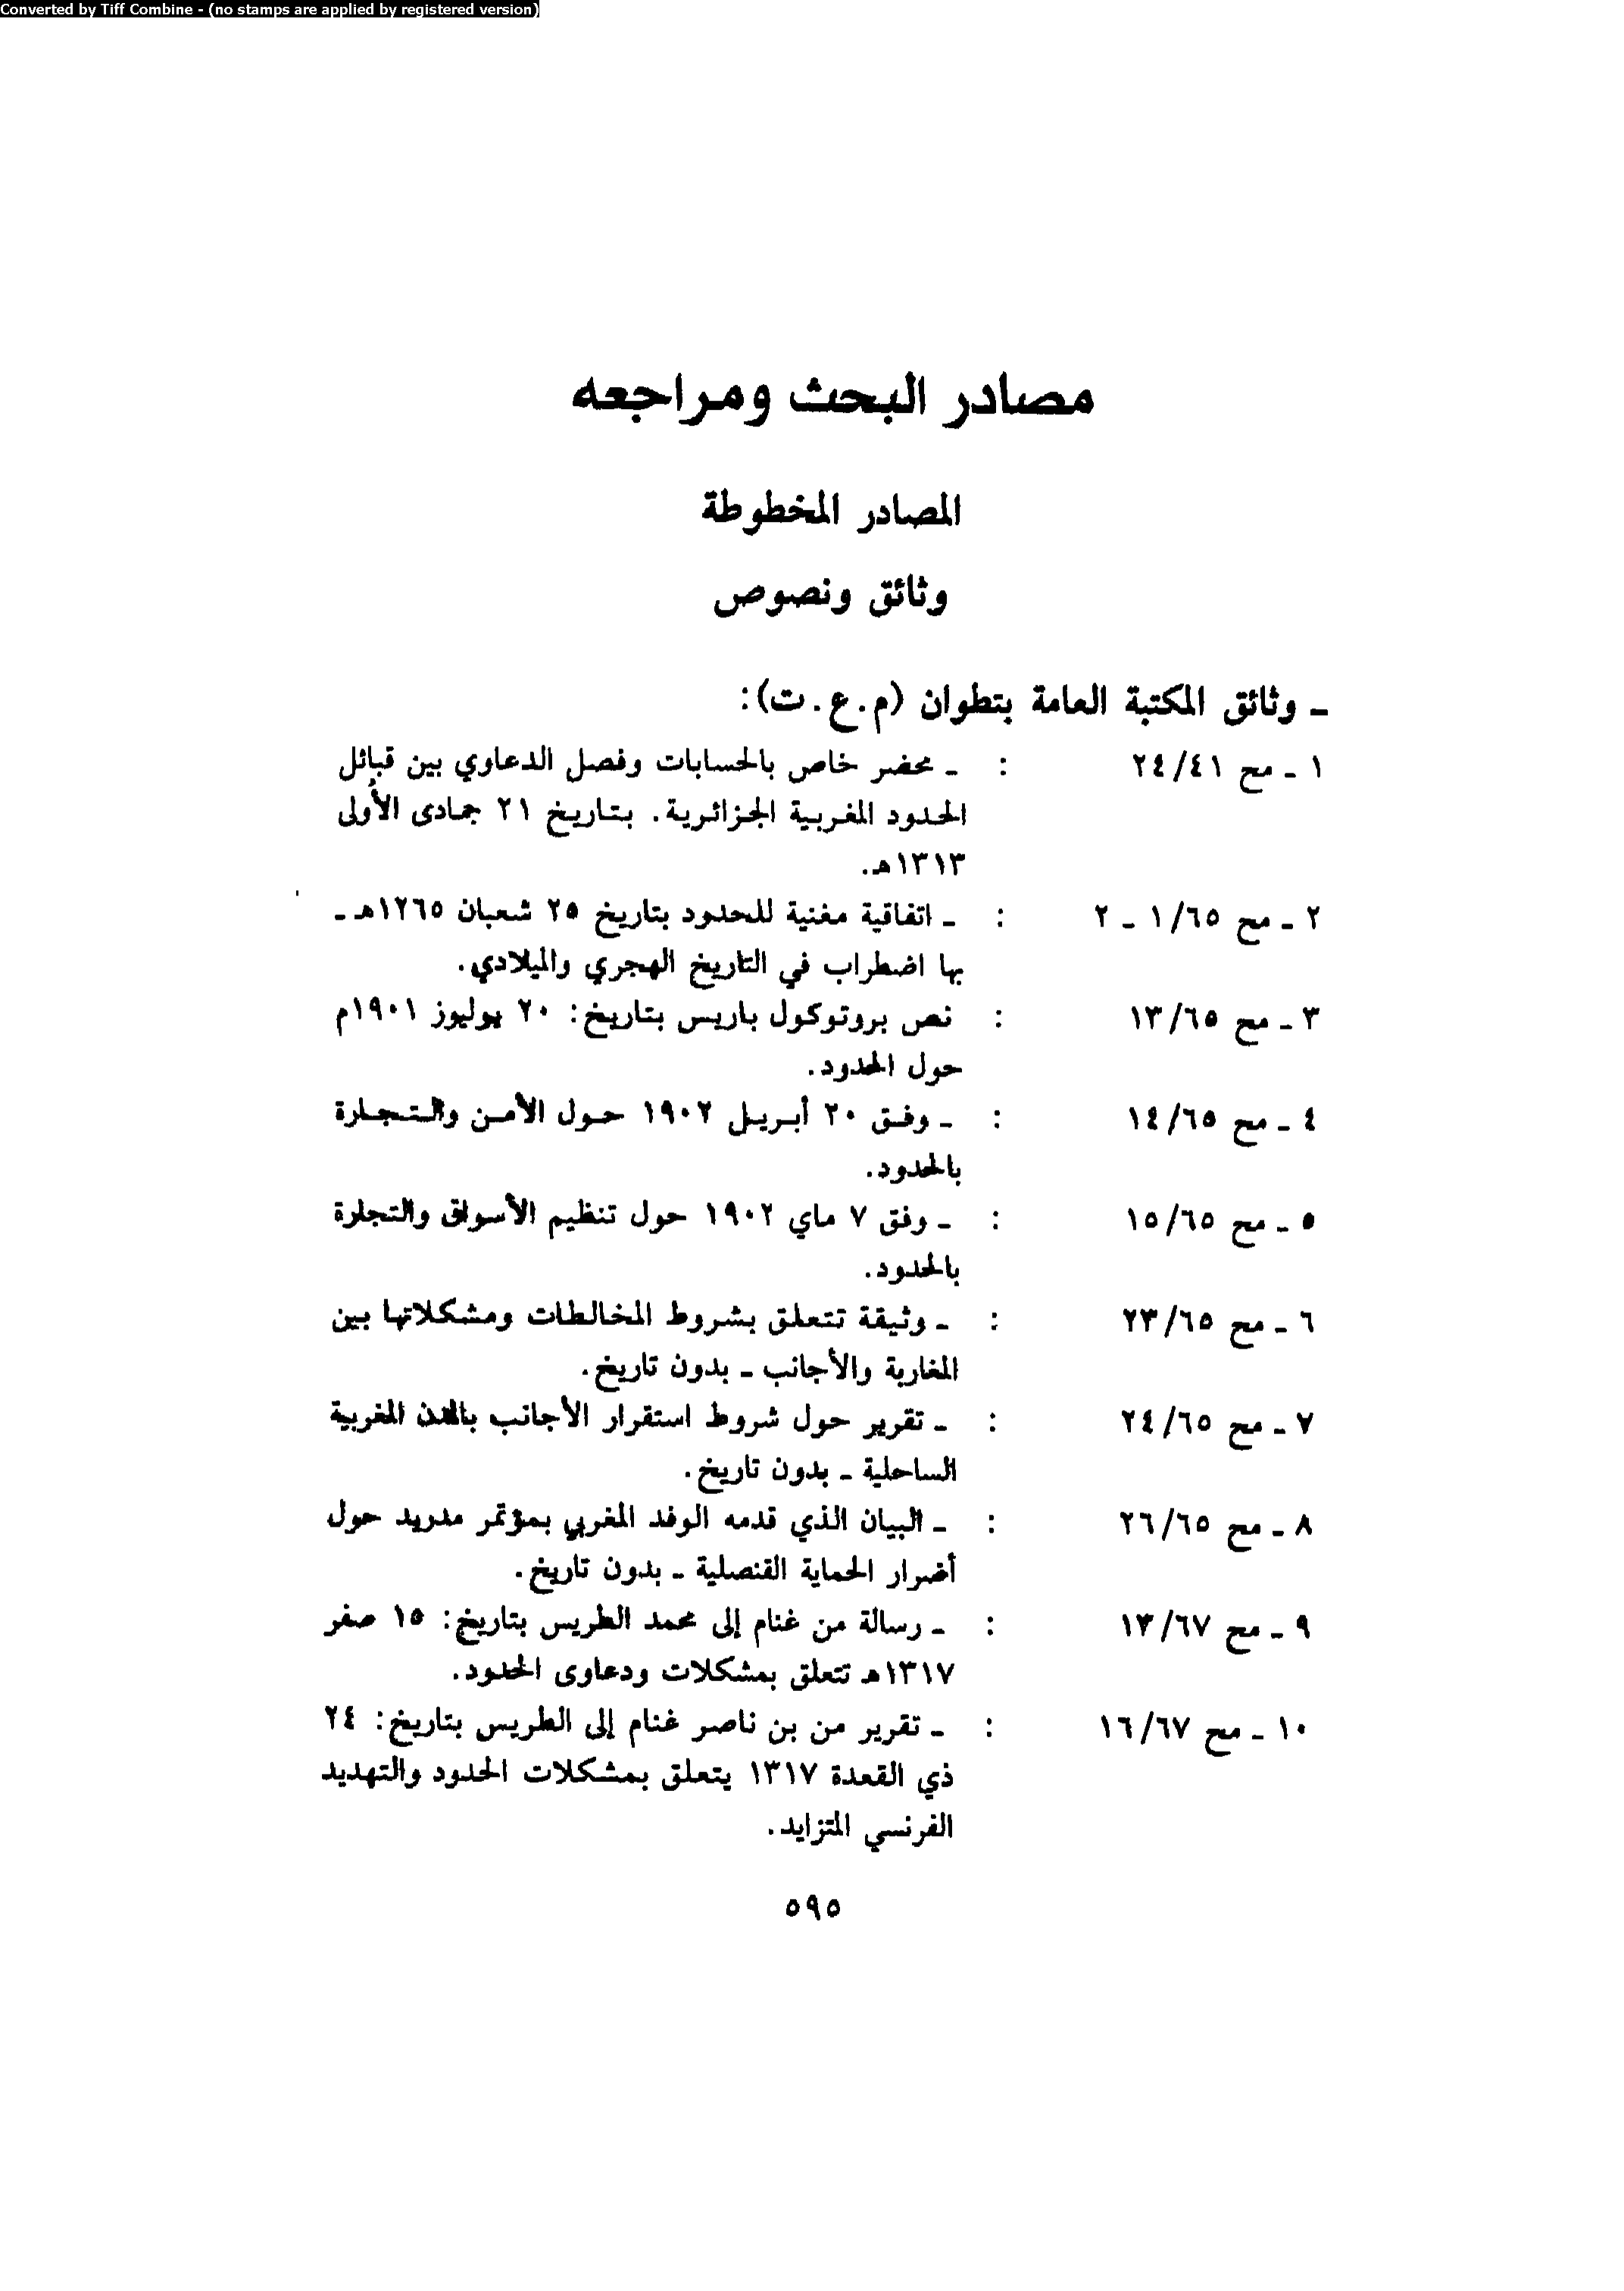 Converted by Tiff Combine - (no stamps are applied by registered version)
مصادر البحث ومراجعه
المصادر المخطوطة
وثائق ونصوص
ـ وثائق المكتبة العامة بتطوان (م.ع.ت):
١ ـ مح ٢٤/٤١ : ـ محضر خاص بالحسابات وفصل الدعاوي بين قبائل
الحدود المغربية الجزائرية. بتاريخ ٢١ جمادى الأولى
١٣١٣هـ.
٢ ـ مح ١/٦٥ ـ ٢ : ـ اتفاقية مغنية للحدود بتاريخ ٢٥ شعبان ١٢٦٥هـ ـ
بها اضطراب في التاريخ الهجري والميلادي.
٣ ـ مح ١٣/٦٥ : نص بروتوكول باريس بتاريخ: ٢٠ يوليوز ١٩٠١م
حول الحدود.
٤ ـ مح ١٤/٦٥ : ـ وفق ٢٠ أبريل ١٩٠٢ حول الأمن والتجارة
بالحدود.
٥ ـ مح ١٥/٦٥ : ـ وفق ٧ ماي ١٩٠٢ حول تنظيم الأسواق والتجارة
بالحدود.
٦ ـ مح ٢٣/٦٥ : ـ وثيقة تتعلق بشروط المخالطات ومشكلاتها بين
المغاربة والأجانب ـ بدون تاريخ.
٧ ـ مح ٢٤/٦٥ : ـ تقرير حول شروط استقرار الأجانب بالمدن المغربية
الساحلية ـ بدون تاريخ.
٨ ـ مح ٢٦/٦٥ : ـ البيان الذي قدمه الوفد المغربي بمؤتمر مدريد حول
أضرار الحماية القنصلية ـ بدون تاريخ.
٩ ـ مح ١٣/٦٧ : ـ رسالة من غنام إلى محمد الطريس بتاريخ: ١٥ صفر
١٣١٧هـ تتعلق بمشكلات ودعاوى الحدود.
١٠ ـ مح ١٦/٦٧ : ـ تقرير من بن ناصر غنام إلى الطريس بتاريخ: ٢٤
ذي القعدة ١٣١٧ يتعلق بمشكلات الحدود والتهديد
الفرنسي المتزايد.
٥٩٥